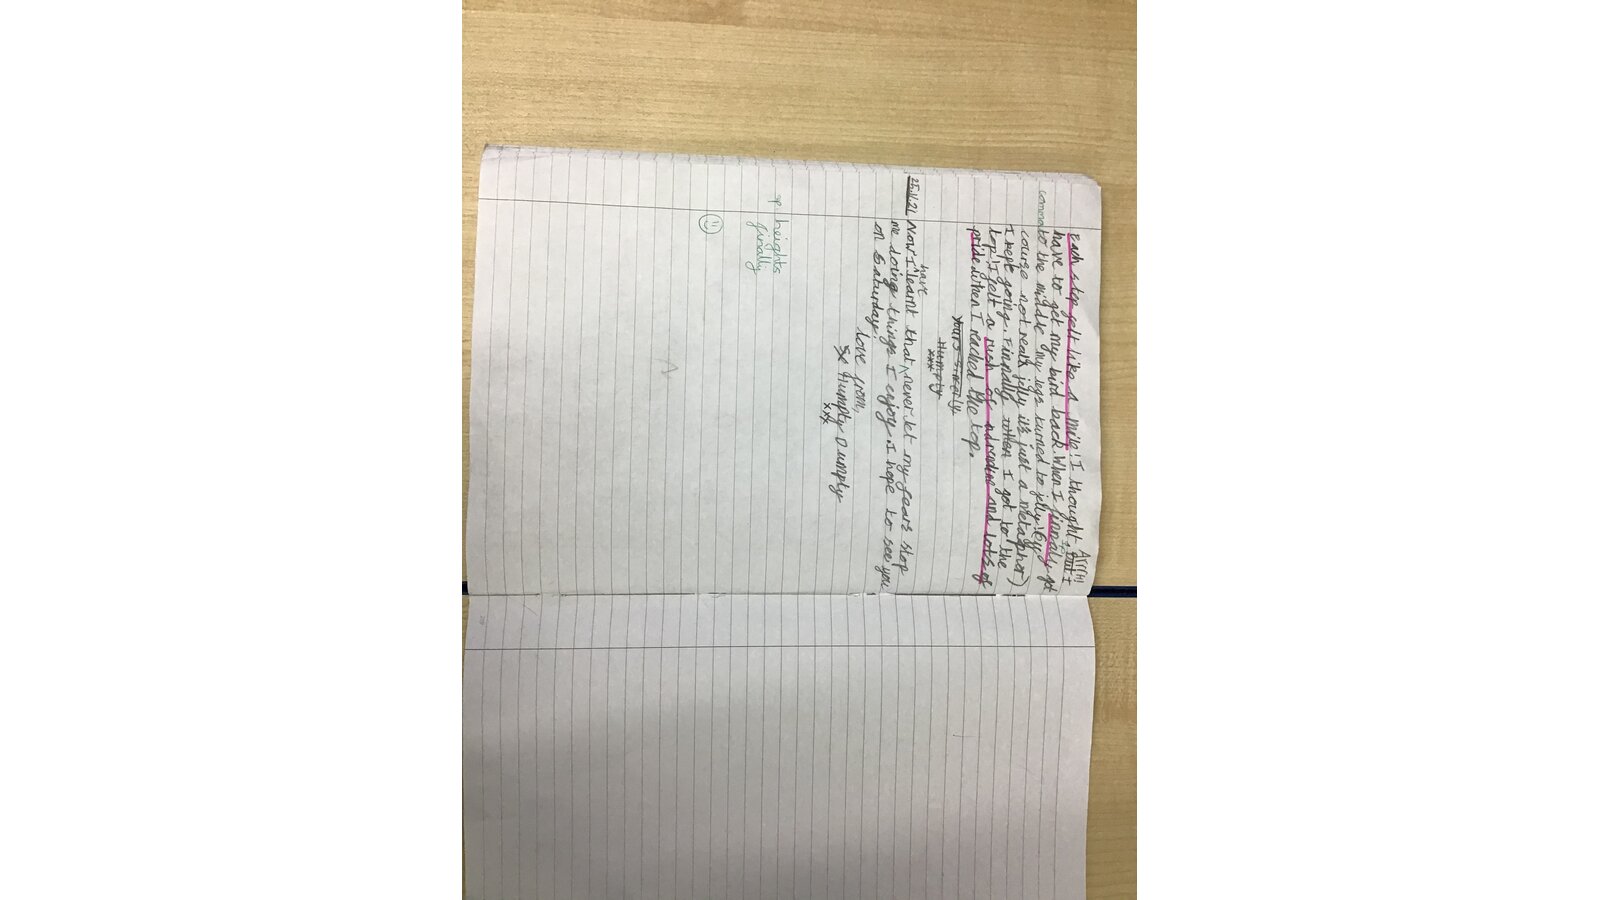 Arrr!!!
each step felt like a mile! I thought, but I
have to get my bird back. When I finnaly got
comma
to the middle my legs turned to jelly! (of
course not real jelly it's just a metaphor)
I kept going. Finnally when I got to the
top I felt a rush of adrenaline and lots of
pride when I reached the top.
Yours sincerly
Humpty
xxx
have
25.11.21 Now I learnt that never let my fears stop
me doing things I enjoy. I hope to see you
on Saturday!
love from,
Humpty Dumpty
xxx
sp. heights
finally